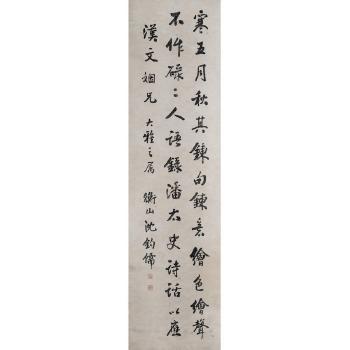 寒五月秋其鍊句鍊意繪色繪聲
不作碌〻人語錄潘太史詩話以應
漢文姻兄大雅之屬 衡山沈鈞儒